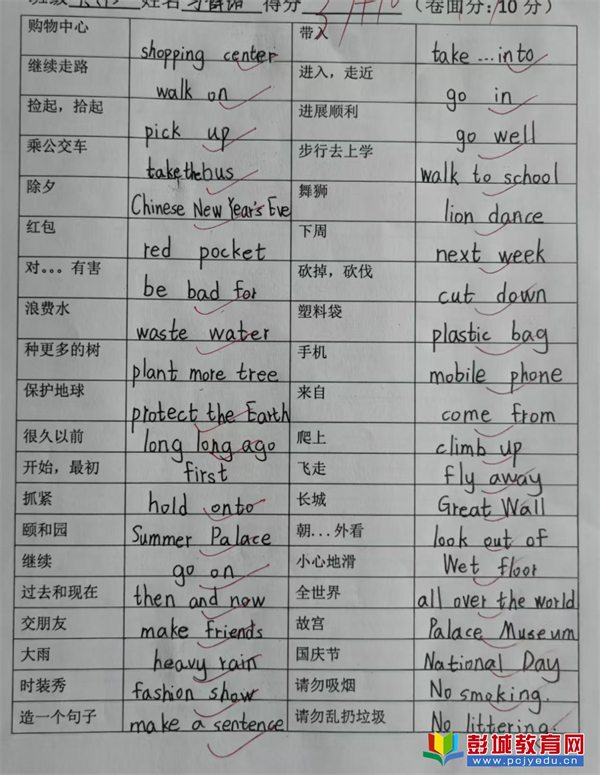 姓名 得分 (卷面分:10分)
购物中心 shopping center 带入 take...into
继续走路 walk on 进入，走近 go in
捡起，拾起 pick up 进展顺利 go well
乘公交车 take the bus 步行去上学 walk to school
除夕 Chinese New Year's Eve 舞狮 lion dance
红包 red pocket 下周 next week
对。。。有害 be bad for 砍掉，砍伐 cut down
浪费水 waste water 塑料袋 plastic bag
种更多的树 plant more tree 手机 mobile phone
保护地球 protect the Earth 来自 come from
很久以前 long long ago 爬上 climb up
开始，最初 first 飞走 fly away
抓紧 hold onto 长城 Great Wall
颐和园 Summer Palace 朝...外看 look out of
继续 go on 小心地滑 Wet floor
过去和现在 then and now 全世界 all over the world
交朋友 make friends 故宫 Palace Museum
大雨 heavy rain 国庆节 National Day
时装秀 fashion show 请勿吸烟 No smoking.
造一个句子 make a sentence 请勿乱扔垃圾 No littering.
彭城教育网
www.pcjyedu.cn